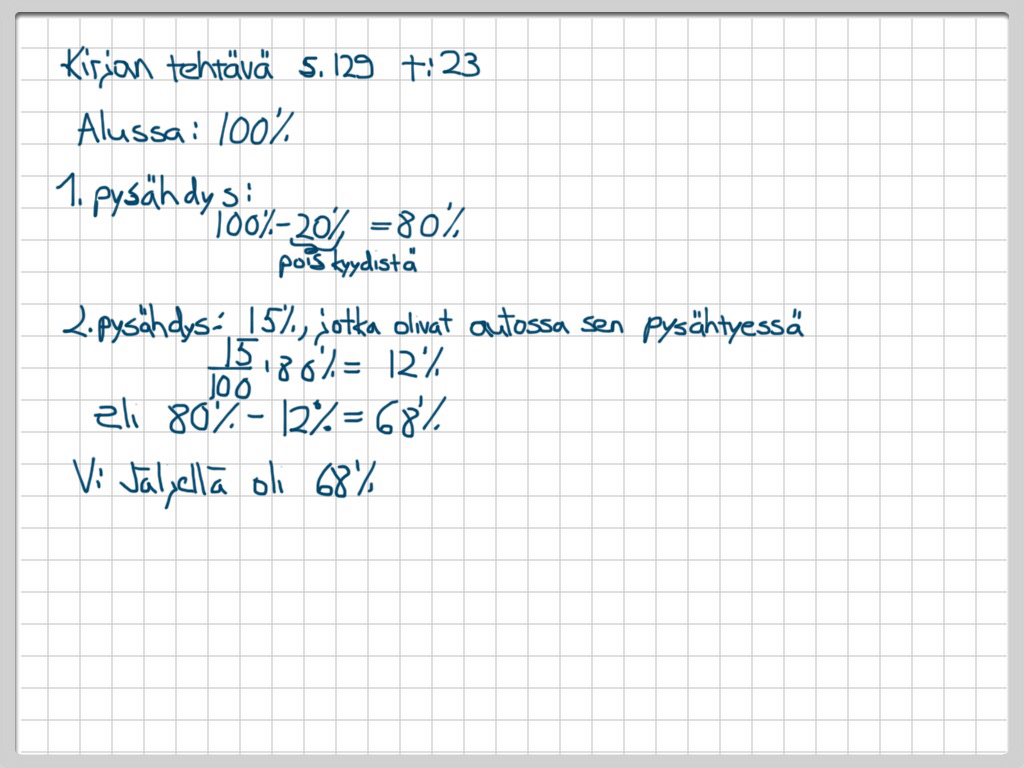 Kirjan tehtävä s. 129 t: 23
Alussa: 100%
1. pysähdys:
100% - 20% = 80%
pois kyydistä
2. pysähdys: 15%, jotka olivat autossa sen pysähtyessä
15/100 · 80% = 12%
eli 80% - 12% = 68%
V: Jäljellä oli 68%